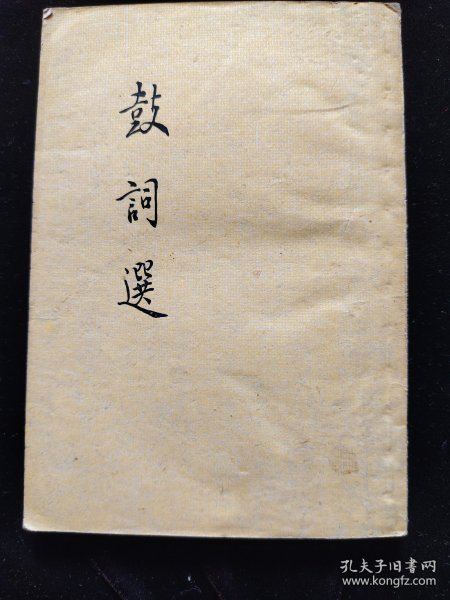 鼓詞選
孔夫子旧书网
www.kongfz.com